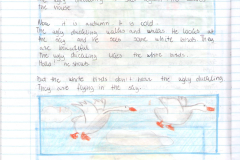 The house.
Now it is autumn. It is cold.
The ugly duckling walks and walks. He looks at
the sky and he sees some white birds. They
are beautiful.
The ugly duckling likes the white birds.
Hello! he shouts.
But the white birds don't hear the ugly duckling.
They are flying in the sky.